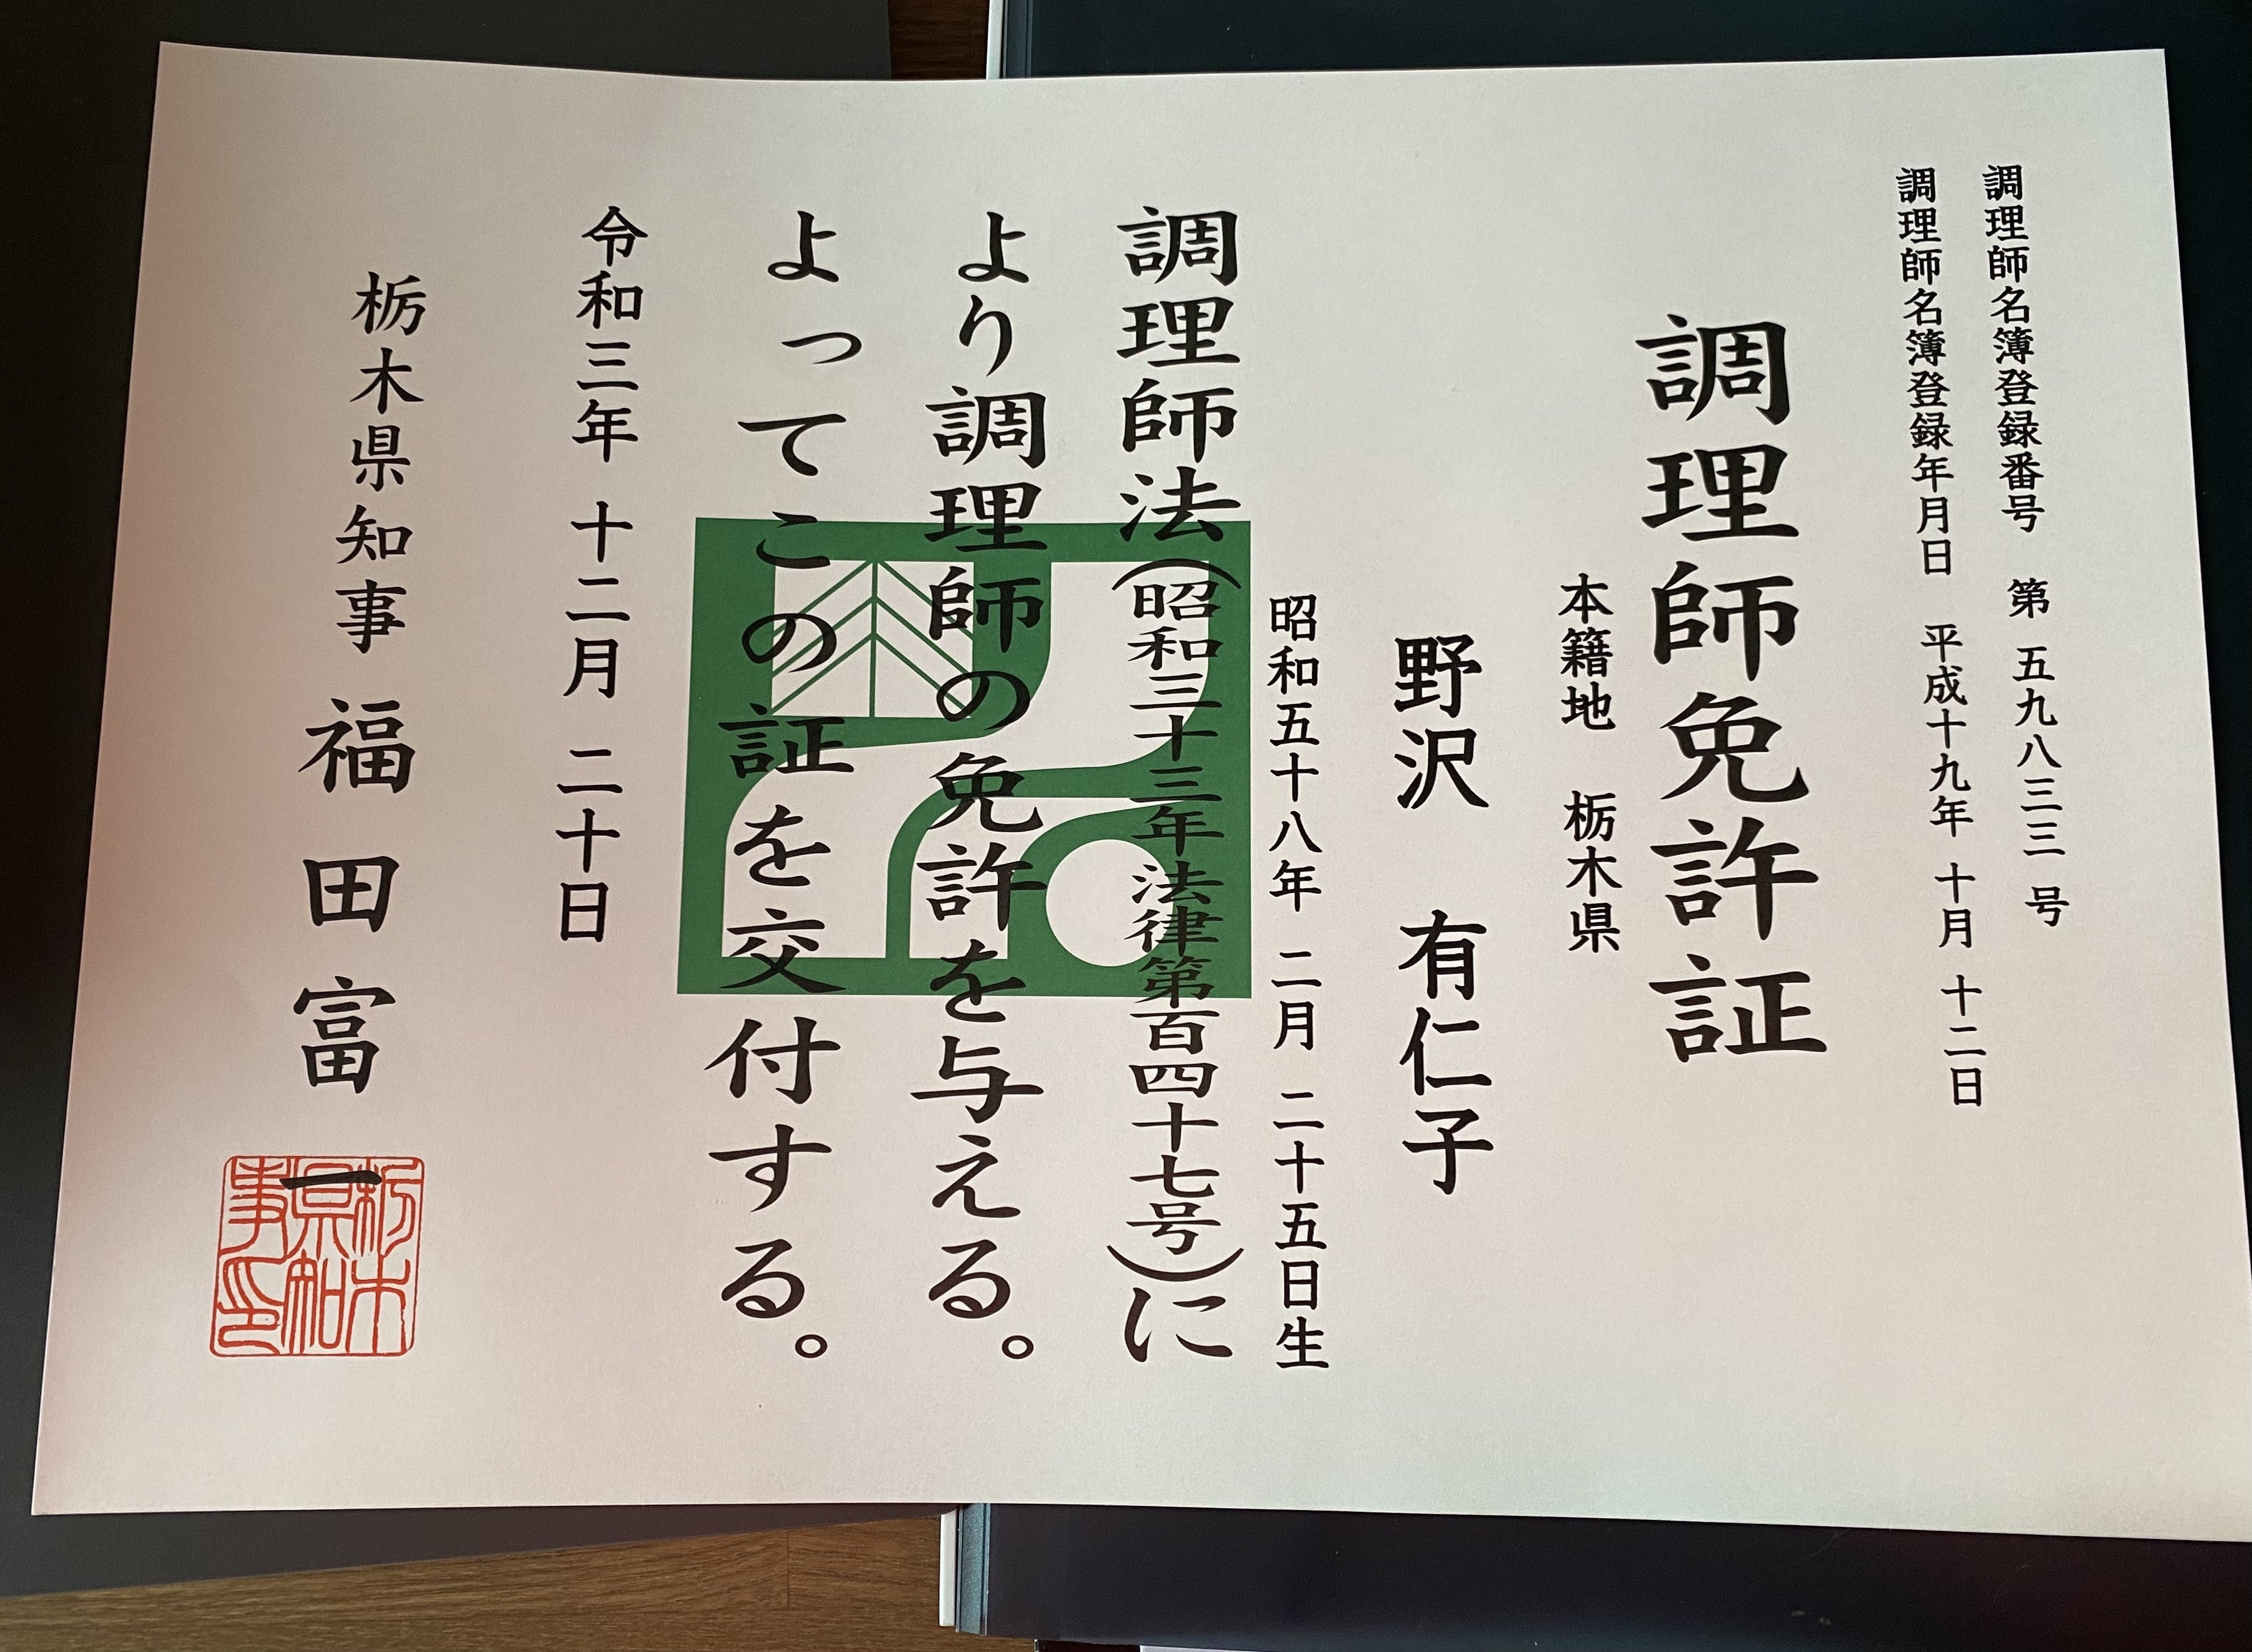 調理師名簿登録番号 第 五九八三三 号
調理師名簿登録年月日 平成十九年 十月 十二日
調理師免許証
本籍地 栃木県
野沢 有仁子
昭和五十八年 二月 二十五日生
調理師法(昭和三十三年法律第百四十七号)に
より調理師の免許を与える。
よってこの証を交付する。
令和三年 十二月 二十日
栃木県知事 福田富一
栃木県知事印